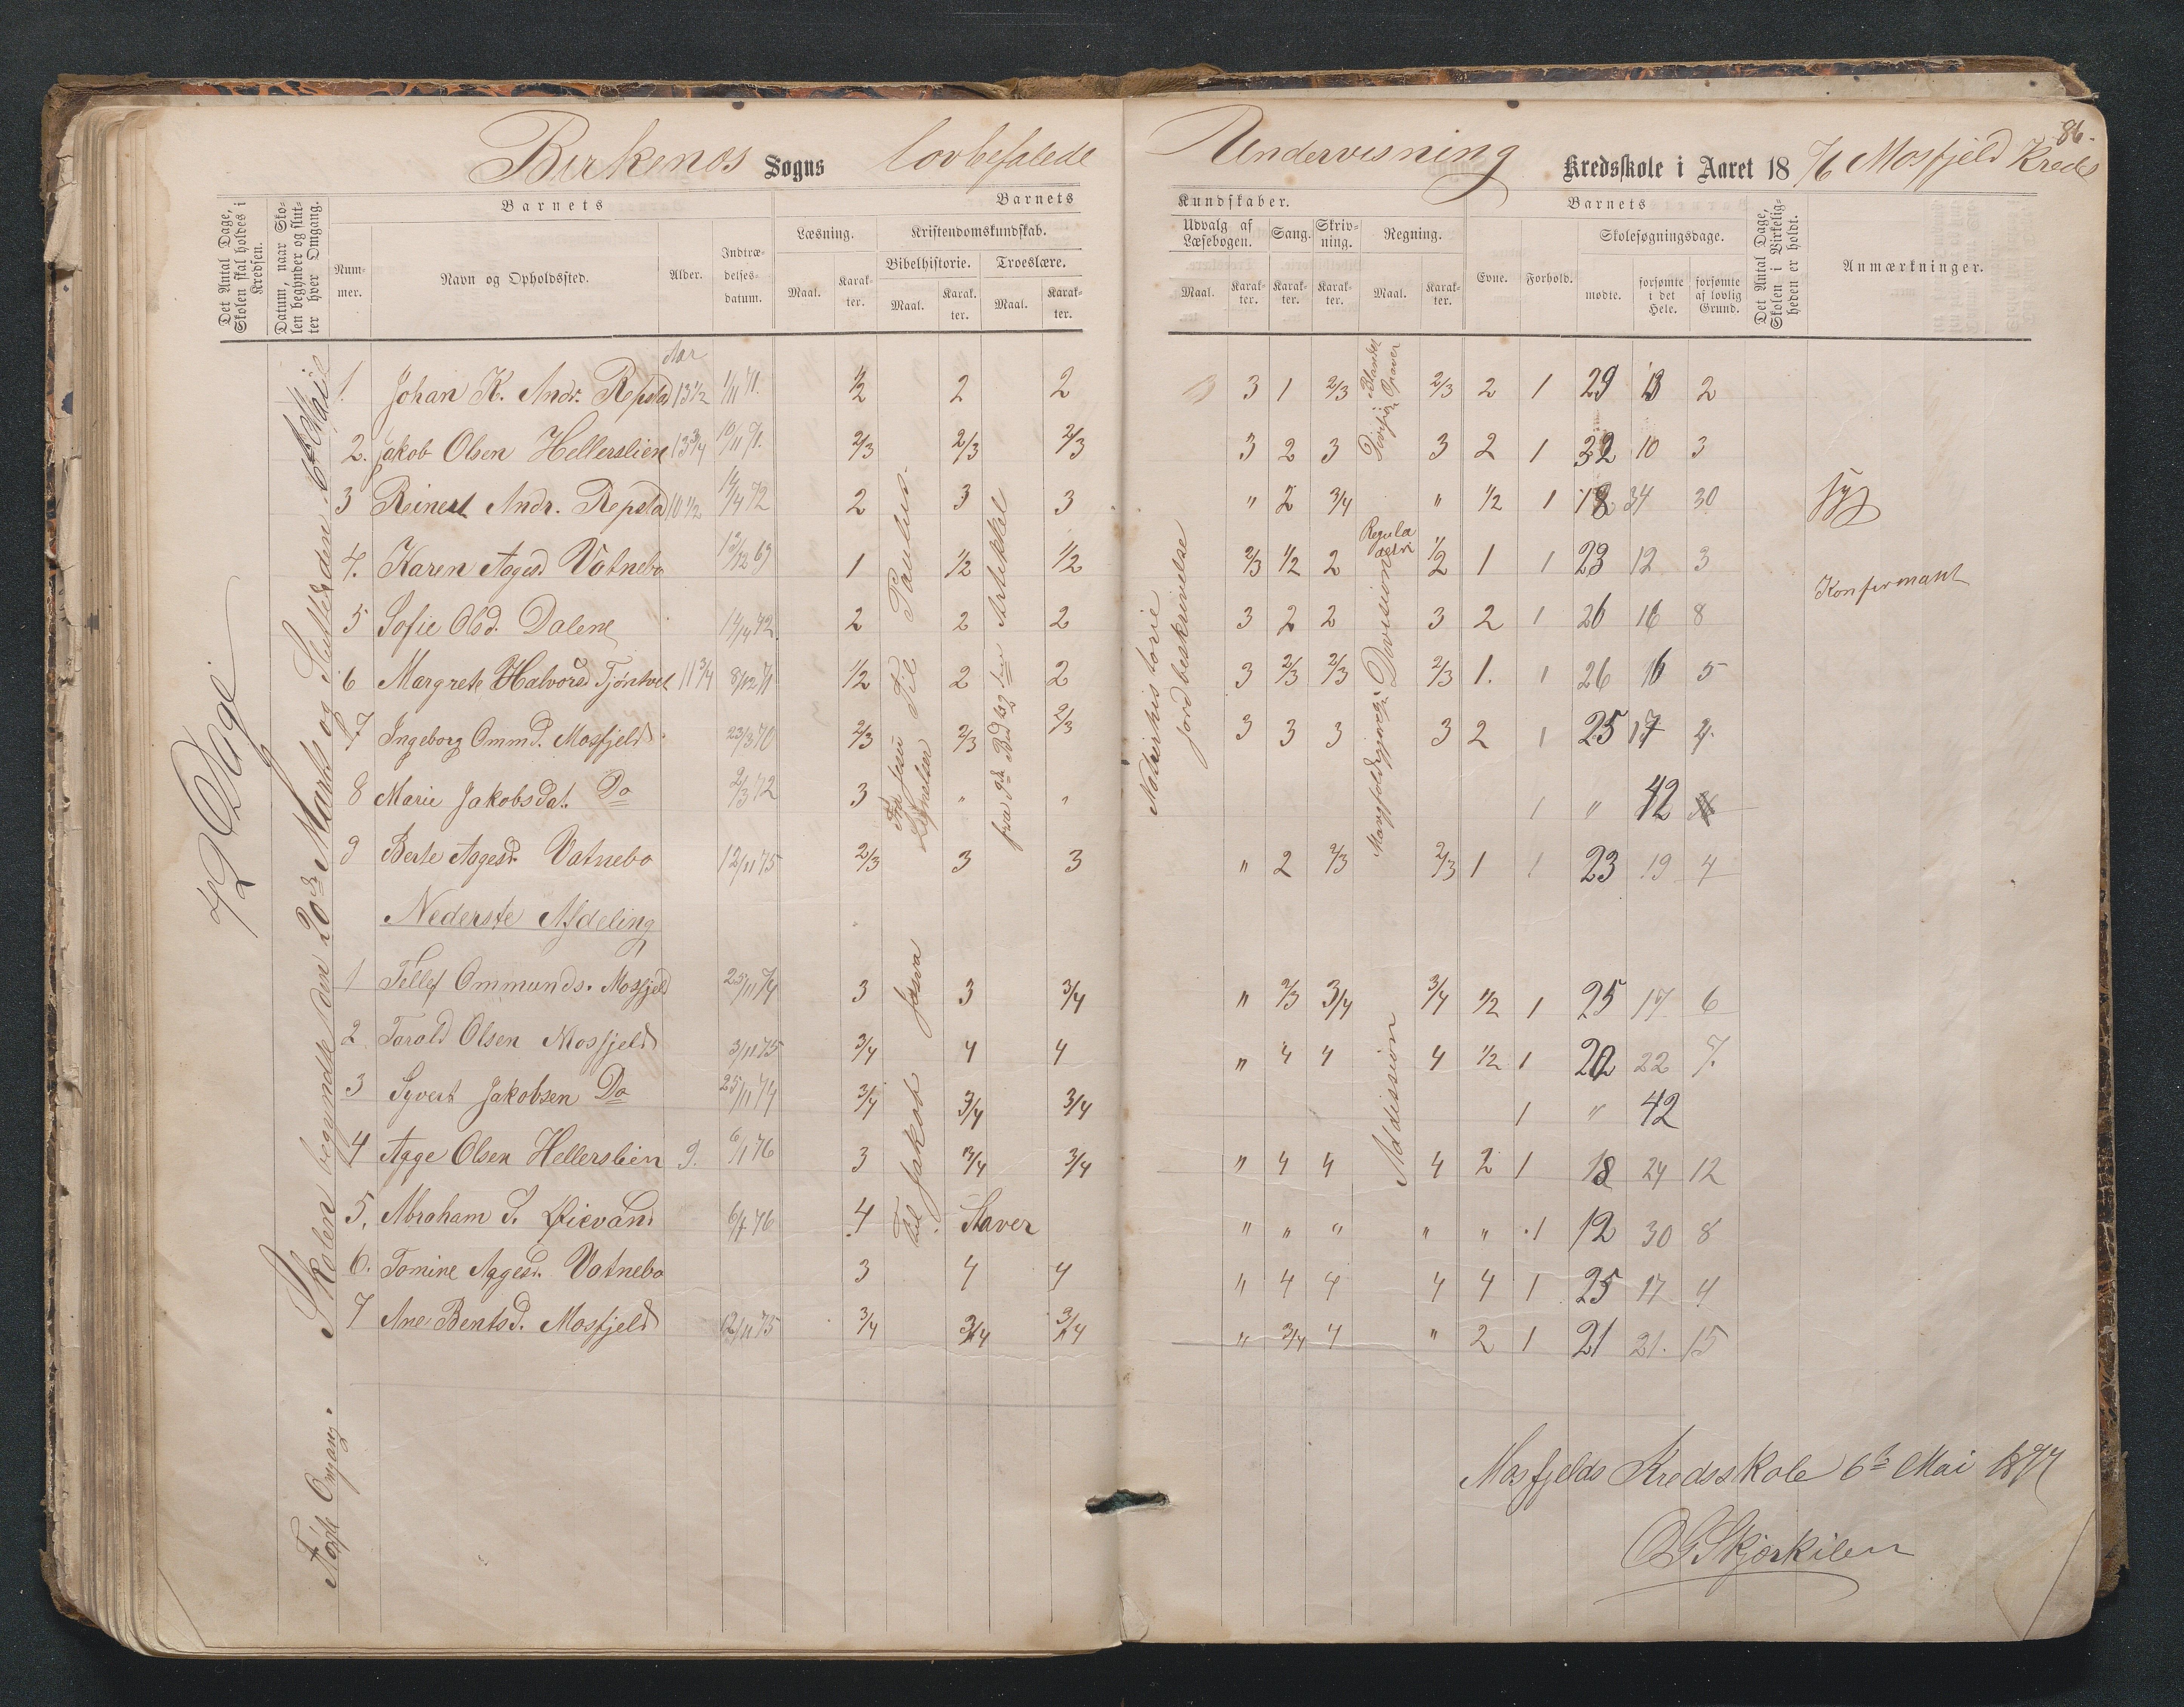 Birkenes Sogns lovbefalede
Undervisning Kredsskole i Aaret 18 7/6 Mosfjeld Kreds
86.
Det Antal Dage, Skolen skal holdes i Kredsen.
Datum, naar Skolen begynder og slutter hver Omgang.
Barnets
Barnets
Nummer.
Navn og Opholdssted.
Alder.
Indtrædelsesdatum.
Læsning.
Maal.
Karakter.
Kristendomskundskab.
Bibelhistorie.
Troeslære.
Maal.
Karakter.
Maal.
Karakter.
Kundskaber.
Udvalg af Læsebogen.
Sang.
Skrivning.
Regning.
Maal.
Karakter.
Karakter.
Karakter.
Maal.
Karakter.
Barnets
Evne.
Forhold.
Skolesøgningsdage.
mødte.
forsømte i det Hele.
forsømte af lovlig Grund.
Det Antal Dage, Skolen i Virkeligheden er holdt.
Anmærkninger.
42 Dage
Første Omgang. Skolen begyndte den 20de Marts og Sluttede den 6te Mai
Aar
1. Johan K. Andr. Repstad 13 1/2 1/11 71. 1/2 2 2 3 1 2/3 2/3 2 1 29 13 2
2. Jakob Olsen Hellerslien 13 3/4 10/11 71. 2/3 2/3 2/3 3 2 3 3 2 1 32 10 3
3 Reinert Andr. Repstad 10 1/2 14/4 72 2 3 3 " 2 3/4 " 1/2 1 18 34 30 syg
4. Karen Aagesd Vatnebo 12/12 69 1 1/2 1/2 2/3 1/2 2 1/2 1 1 23 12 3 Konfirmant
5 Sofie Olsd. Dalene 14/4 72 2 2 2 3 2 2 3 2 1 26 16 8
6 Margrete Halvorsd Tjøntvet 11 3/4 8/12 71 1/2 2 2 3 2/3 2/3 2/3 1. 1 26 16 5
7 Ingeborg Ommd. Mosfjeld 23/3 70 2/3 2/3 2/3 3 3 3 3 2 1 25 17 4.
8 Marie Jakobsdat. Do 2/3 72 3 " " 1 " 42
9 Berte Aagesd. Vatnebo 12/11 75 2/3 3 3 " 2 2/3 2/3 1 1 23 19 4
Nederste Afdeling
1 Tellef Ommunds. Mosfjeld 25/11 74 3 3 3/4 " 2/3 3/4 3/4 1/2 1 25 17 6
2 Tarald Olsen Mosfjeld 3/11 75 3/4 4 4 " 4 4 4 1/2 1 20 22 7.
3 Syvert Jakobsen Do 25/11 74 3/4 3/4 3/4 1 " 42
4 Aage Olsen Hellerslien 9. 6/11 76 3 3/4 3/4 " 4 4 4 2 1 18 24 12
5. Abraham S. Øievand 6/4 76 4 Staver " " " " " 1 12 30 8
6. Tomine Aagesd. Vatnebo 3 4 4 " 4 4 4 4 1 25 17 4
7 Ane Bentsd. Mosfjeld 12/11 75 3/4 3/4 3/4 " 3/4 4 " 2 1 21 21. 15
Fra Jesu Lignelser Til Paulus
fra 1ste Bud og 2den Artikkel
til Jakob Josva
Naturhistorie
jordbeskrivelse
Division Blandet Opgaver
Regula detri
Mangfoldiggjøring i Division
Addission
Mosfjelds Kredsskole 6te Mai 1877
O G Skjerkilen